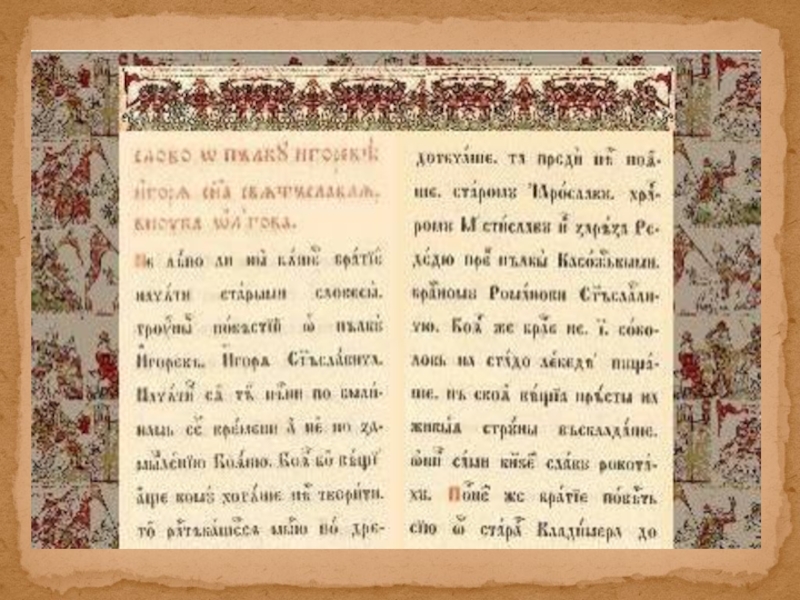 слово ѡ пълкꙋ игоревѣ
игорѧ сн҃а свѧтъславлѧ,
внꙋка ѡльгова.
Не лѣпо ли ны бѧшеⷮ братїе
начѧти старыми словесы.
трꙋдныⷯ повѣстїй ѡ пълкꙋ
Игоревѣ. Игорѧ Ст҃ъславича.
Начати сѧ тъ пѣсни по были-
намь сеⷢ времени а не по за-
мышленїю Боѧню. Боѧ бо вѣщї
аще комꙋ хотѧше пѣⷭ творити.
то растѣкашесѧ мыслїю по дре-
дотечаше. та преди пѣⷭ поѧ-
ше. старомꙋ Ꙗрославꙋ. хра-
ромꙋ Мстиславꙋ иⷤ зарѣза Ре-
дедю преⷣ пълкы Касожьскыми.
красномꙋ Романови Ст҃ъслали-
чю. Боѧ же браⷮ не. ї. соко-
ловь на стадо лебедѣй пꙋща-
ше. нъ своѧ вѣщїа пръсты на
живыѧ стрꙋны въскладаше.
ѡни сами кнѧзеⷨ славꙋ рокота-
хꙋ. Почнеⷨ же братїе повѣсть
сїю ѿ стараⷢ Владимера до